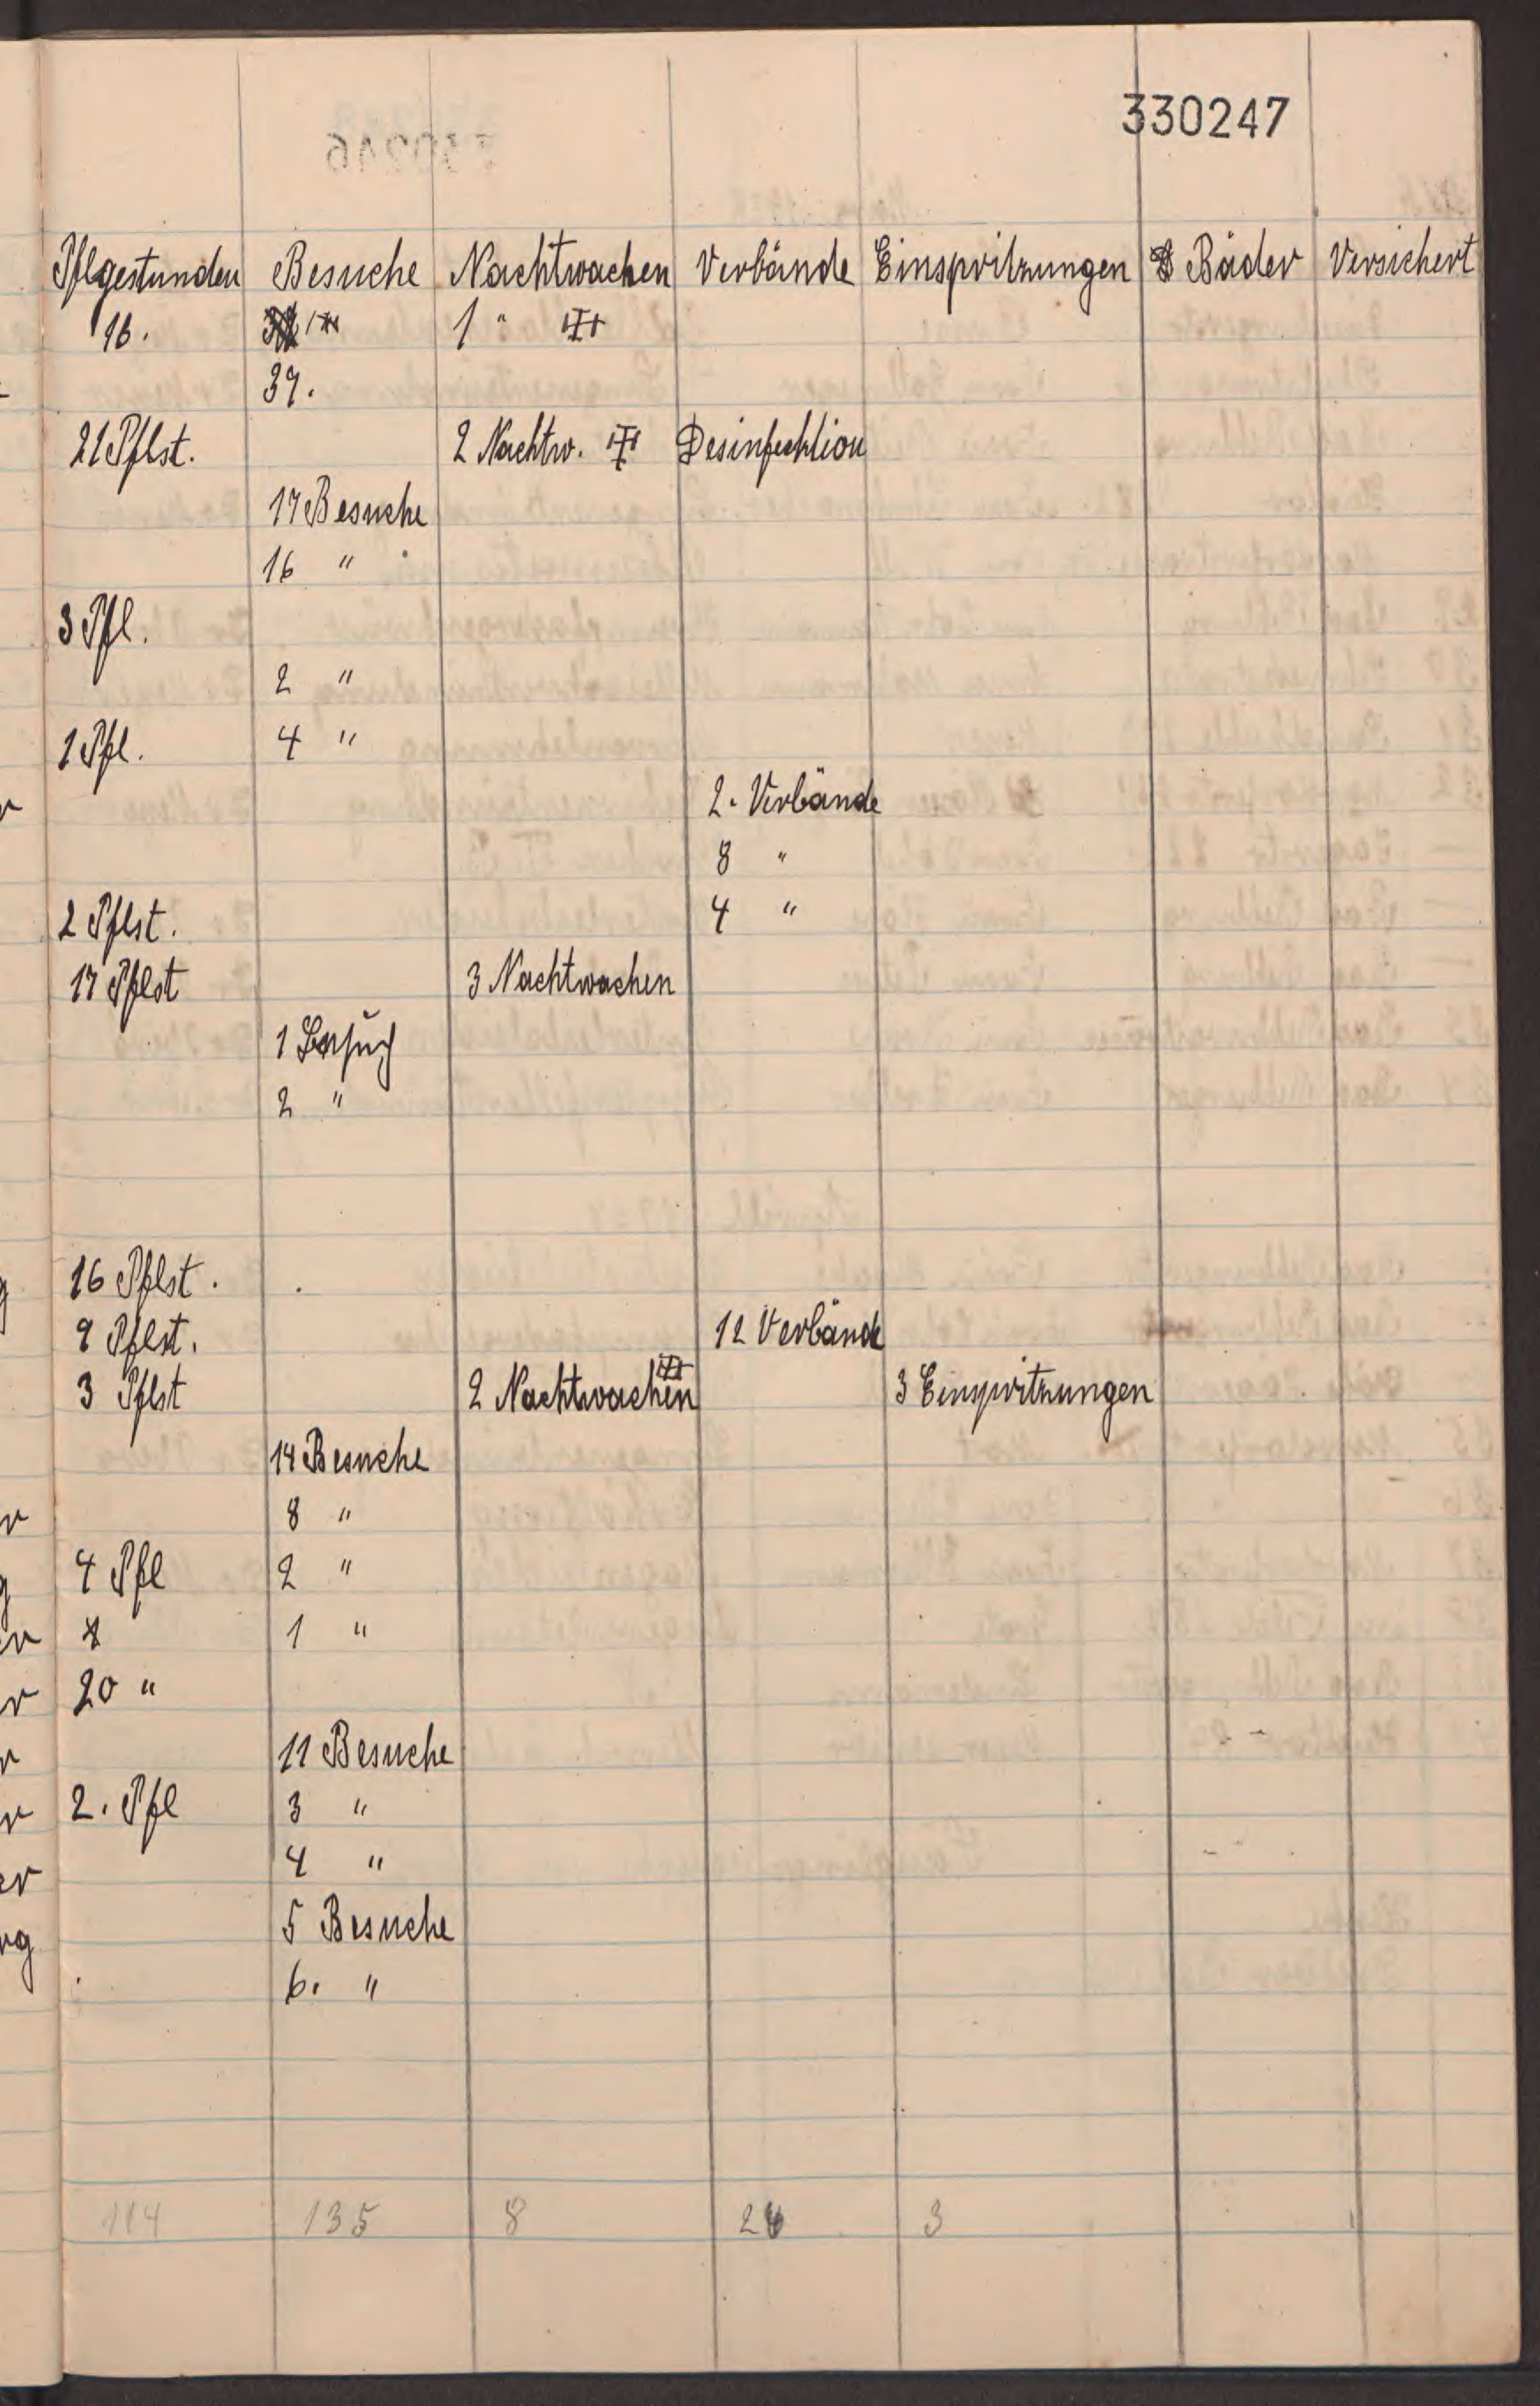 330247
Pflegestunden Besuche Nachtwachen Verbände Einspritzungen Bäder Versichert
16. 1 "
39.
21 Pflst. 2 Nachtw. Desinfecktion
17 Besuche
16 "
3 Pfl.
2 "
1 Pfl. 4 "
2. Verbände
8 "
2 Pflst. 4 "
17 Pflst 3 Nachtwachen
1 Besuch
2 "
16 Pflst.
9 Pflst. 12 Verbände
3 Pflst 2 Nachtwachen 3 Einspritzungen
14 Besuche
8 "
4 Pfl 2 "
1 "
20 "
11 Besuche
2. Pfl 3 "
4 "
5 Besuche
6. "
114 135 8 26 3